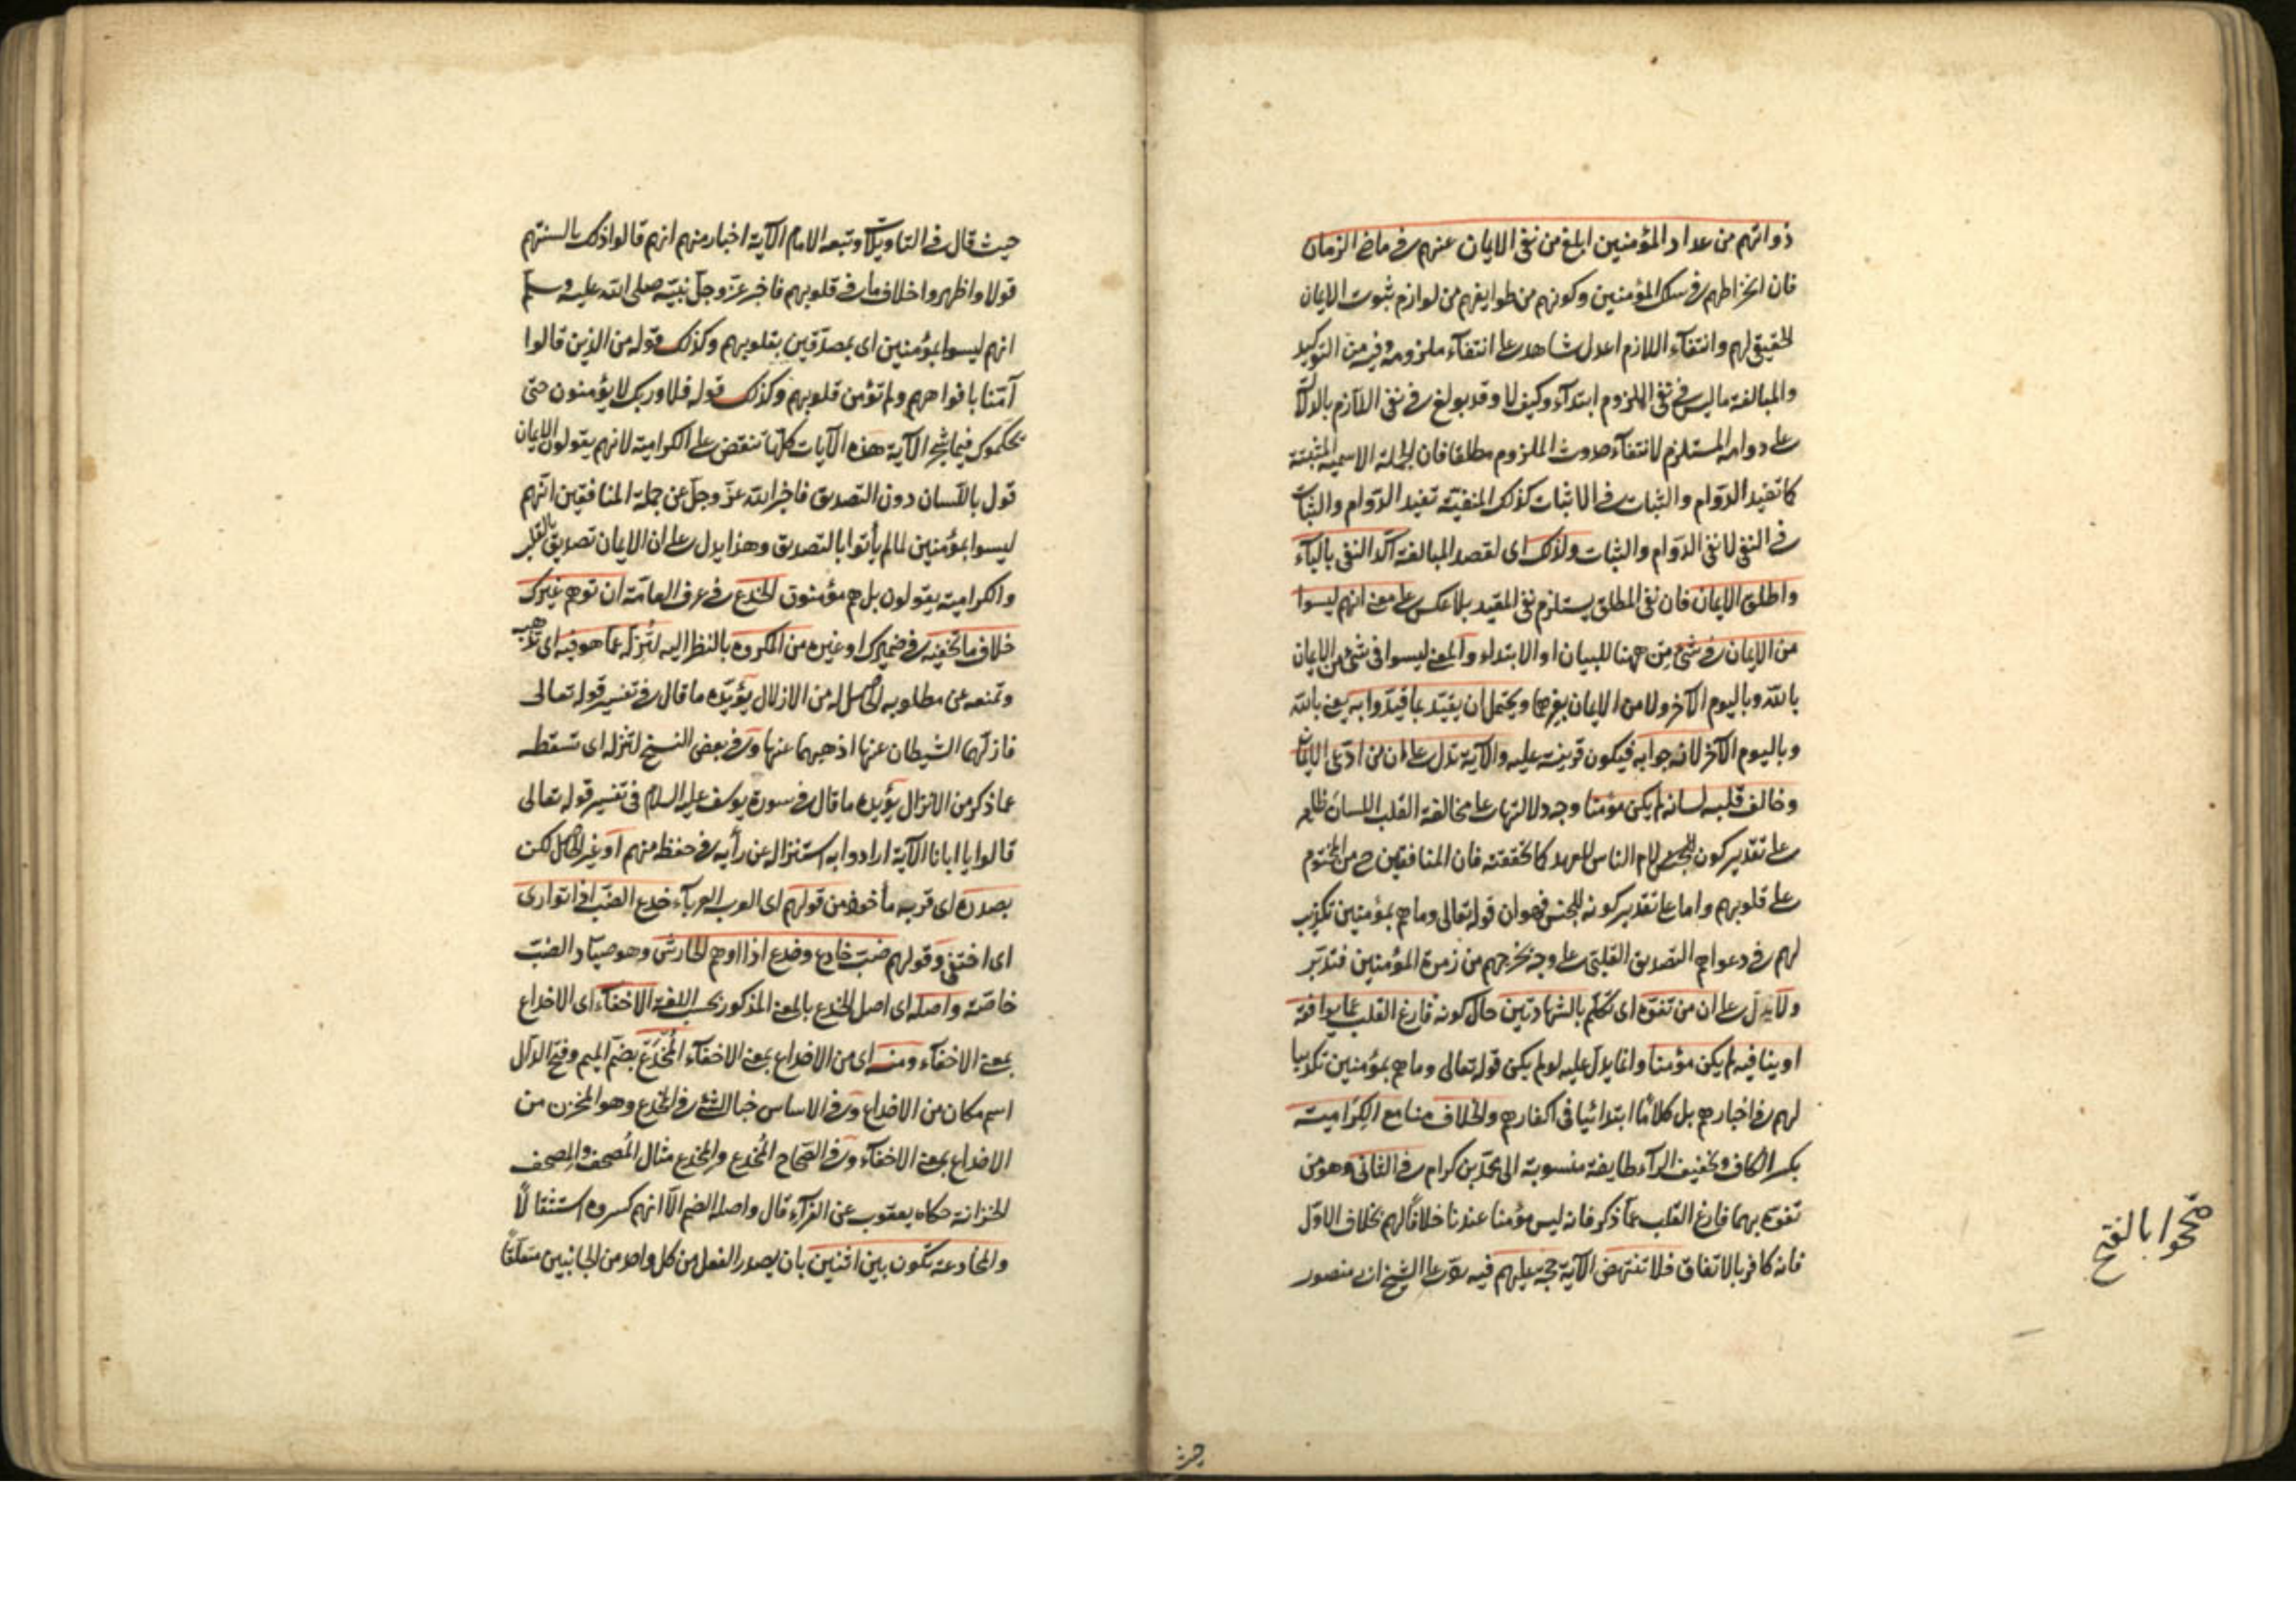 ذواتهم من عداد المؤمنين ابلغ من نفى الايمان عنهم في ماضى الزمان
فان انخراطهم في سلك المؤمنين وكونهم من طوايفهم من لوازم ثبوت الايمان
الحقيقى لهم وانتفآء اللازم اعدل شاهد على انتفآء ملزومه وفيه من التوكيد
والمبالغة ما ليس في نفى الملزوم ابتدآء وكيف لا وقد بولغ في نفى اللازم بالدلالة
على دوامه المستلزم لانتفآء حدوث الملزوم مطلقا فان الجملة الاسمية المثبتة
كما تفيد الدوام والثبات في الاثبات كذلك المنفية تفيد الدوام والثبات
في النفى لا نفى الدوام والثبات ولذلك اى لقصد المبالغة اكد النفى بالبآء
واطلق الايمان فان نفى المطلق يستلزم نفى المقيد بلا عكس على معنى انهم ليسوا
من الايمان في شئ من ههنا للبيان او الابتداء والمعنى ليسوا فى شئ من الايمان
بالله وباليوم الآخر ولا من الايمان بغيرهما ويحتمل ان يقيد بما قيدوا به يعنى بالله
وباليوم الآخر لانه جوابه فيكون قرينة عليه والآية تدل على ان من ادعى الايمان
وخالف قلبه لسانه لم يكن مؤمنا وجه دلالتها على مخالفة القلب اللسان ظاهر
على تقدير كون لام الناس للعهد كما تحققته فان المنافقين ح من المختوم
على قلوبهم واما على تقدير كونه للجنس فهو ان قوله تعالى وما هم بمؤمنين تكذيب
لهم في دعواهم التصديق القلبى على وجه يخرجهم من زمرة المؤمنين فتدبر
ولا يدل على ان من تفوه اى تكلم بالشهادتين حال كونه فارغ القلب عما يوافقه
او ينافيه لم يكن مؤمنا وانما يدل عليه لو لم يكن قوله تعالى وما هم بمؤمنين تكذيبا
لهم في اخبارهم بل كلاما ابتدائيا فى اكفارهم والخلاف منا مع الكرامية
بكسر الكاف وتخفيف الرآء طايفة منسوبة الى محمد بن كرام في الثانى وهو من
تفوه بهما فارغ القلب عما ذكر فانه ليس مؤمنا عندنا خلافا لهم بخلاف الاول
فانه كافر بالاتفاق فلا تنتهض الآية حجة عليهم فيه رد على الشيخ ابى منصور
بالفتح
حيث
حيث قال في التاويلات وتبعه الامام الآية اخبار منهم انهم قالوا ذلك بالسنتهم
قولا واظهروا خلاف ما في قلوبهم فاخبر عز وجل نبيه صلى الله عليه وسلم
انهم ليسوا بمؤمنين اى بمصدقين بقلوبهم وكذلك قوله من الذين قالوا
آمنا بافواههم ولم تؤمن قلوبهم وكذلك قوله فلا وربك لا يؤمنون حتى
يحكموك فيما شجر الآية هذه الآيات كلها تنقض على الكرامية لانهم يقولون الايمان
قول باللسان دون التصديق فاخبر الله عز وجل عن جملة المنافقين انهم
ليسوا بمؤمنين لما لم يأتوا بالتصديق وهذا يدل على ان الايمان تصديق بالقلب
والكرامية يقولون بل هم مؤمنون الخدع في عرف العامة ان توهم غيرك
خلاف ما تخفيه في ضميرك او غيره من المكروه بالنظر اليه لتزله عما هو فيه اى تذهبه
وتمنعه عن مطلوبه الحاصل له من الازلال يؤيده ما قال في تفسير قوله تعالى
فازلهما الشيطان عنها اذهبهما عنها وفي بعض النسخ لتنزله اى تسقطه
عما ذكر من الانزال يؤيده ما قال في سورة يوسف عليه السلام فى تفسير قوله تعالى
قالوا يا ابانا الآية ارادوا به استنزاله عن رأيه في حفظه منهم او غير الحاصل لكن
بصدده اى قربه مأخوذ من قولهم اى العرب العرباء خدع الضب اذا توارى
اى اختفى وقولهم ضب خادع وخدع اذا اوهم الحارش وهو صياد الضب
خاصة واصله اى اصل الخدع بالمعنى المذكور بحسب اللغة الاخفاء اى الاخداع
بمعنى الاخفاء ومنه اى من الاخداع بمعنى الاخفآء المخدع بضم الميم وفتح الدال
اسم مكان من الاخداع وفي الاساس خبا الشئ في المخدع وهو المخزن من
الاخداع بمعنى الاخفآء وفي الصحاح المخدع والمخدع مثال المصحف والمصحف
الخزانة حكاه يعقوب عن الفرآء قال واصله الضم الا انهم كسروه استثقالا
والمخادعة تكون بين اثنين بان يصدر الفعل من كل واحد من الجانبين متعلقا